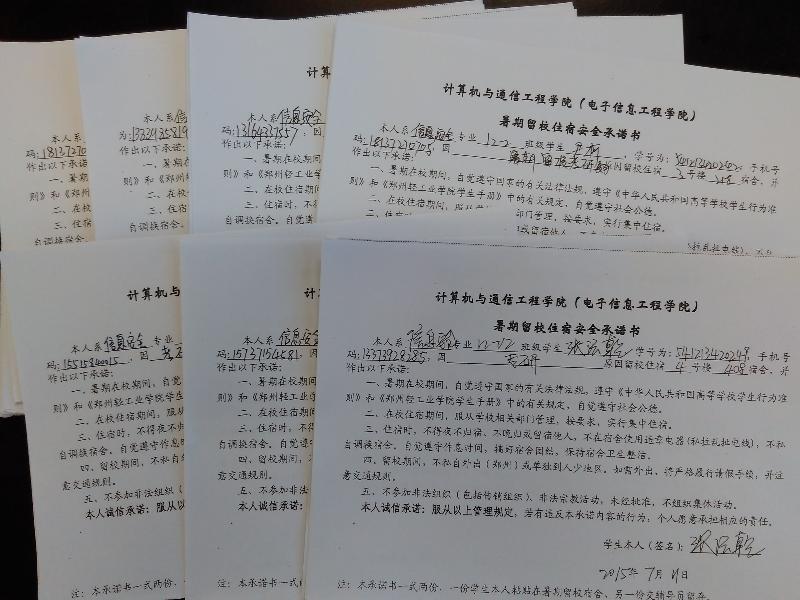 计算机与
本人系信息安全
码:1813727０
作出以下承诺:
一、暑期
则》和《郑州
二、在校
三、住宿
自调换宿舍。
本人系信
为:1333935819
作出以下承诺:
一、暑期在校
则》和《郑州轻
二、在校住宿
三、住宿时
自调换宿舍。自
计算
本人系信息安全
码:13164337557,因
作出以下承诺:
一、暑期在校期间
则》和《郑州轻工业
二、在校住宿期间
三、住宿时,不得
自调换宿舍。自觉遵
计算机与通信工程学院(电子信息工程学院)
暑期留校住宿安全承诺书
本人系信息安全专业12-2班级学生,学号为:,手机号
码:18137270705因暑期留校考研原因留校住宿3号楼宿舍,并
作出以下承诺:
一、暑期在校期间,自觉遵守国家的有关法律法规,遵守《中华人民共和国高等学校学生行为准
则》和《郑州轻工业学院学生手册》中的有关规定,自觉遵守社会公德。
二、在校住宿期间,服从学校相关部门管理,按要求,实行集中住宿。
三、住宿
计算机与
本人系信息安全专业
码:15515840015,因考
作出以下承诺:
一、暑期在校期间,自觉
则》和《郑州轻工业学院学生
二、在校住宿期间,服从
三、住宿时,不得夜不归
自调换宿舍。自觉遵守作息时
四、留校期间,不私自外
意交通规则。
五、不参加非法组织(
本人诚信承诺:服从以
注:本承诺书一式两份,
计算
本人系信息安全
码:15737154581,因
作出以下承诺:
一、暑期在校期间
则》和《郑州轻工业学
二、在校住宿期间
三、住宿时,不得
自调换宿舍。自觉遵
四、留校期间,不
意交通规则。
五、不参加非法
本人诚信承诺:
注:本承诺书一式
计算机与通信工程学院(电子信息工程学院)
暑期留校住宿安全承诺书
本人系信息安全专业12-02班级学生张宏乾学号为:541213420249,手机号
码:13373928285,因考研原因留校住宿4号楼408宿舍,并
作出以下承诺:
一、暑期在校期间,自觉遵守国家的有关法律法规,遵守《中华人民共和国高等学校学生行为准
则》和《郑州轻工业学院学生手册》中的有关规定,自觉遵守社会公德。
二、在校住宿期间,服从学校相关部门管理,按要求,实行集中住宿。
三、住宿时,不得夜不归宿、不晚归或留宿他人,不在宿舍使用违章电器(和拉乱扯电线),不私
自调换宿舍。自觉遵守作息时间,搞好宿舍团结,保持宿舍卫生整洁。
四、留校期间,不私自外出(郑州)或单独到人少地区。如需外出,将严格履行请假手续,并注
意交通规则。
五、不参加非法组织(包括传销组织)、非法宗教活动,未经批准,不组织集体活动。
本人诚信承诺:服从以上管理规定,若有违反本承诺内容的行为,个人愿意承担相应的责任。
学生本人(签名):张宏乾
2015年7月11日
注:本承诺书一式两份,一份学生本人粘贴在暑期留校宿舍,另一份交辅导员留存。